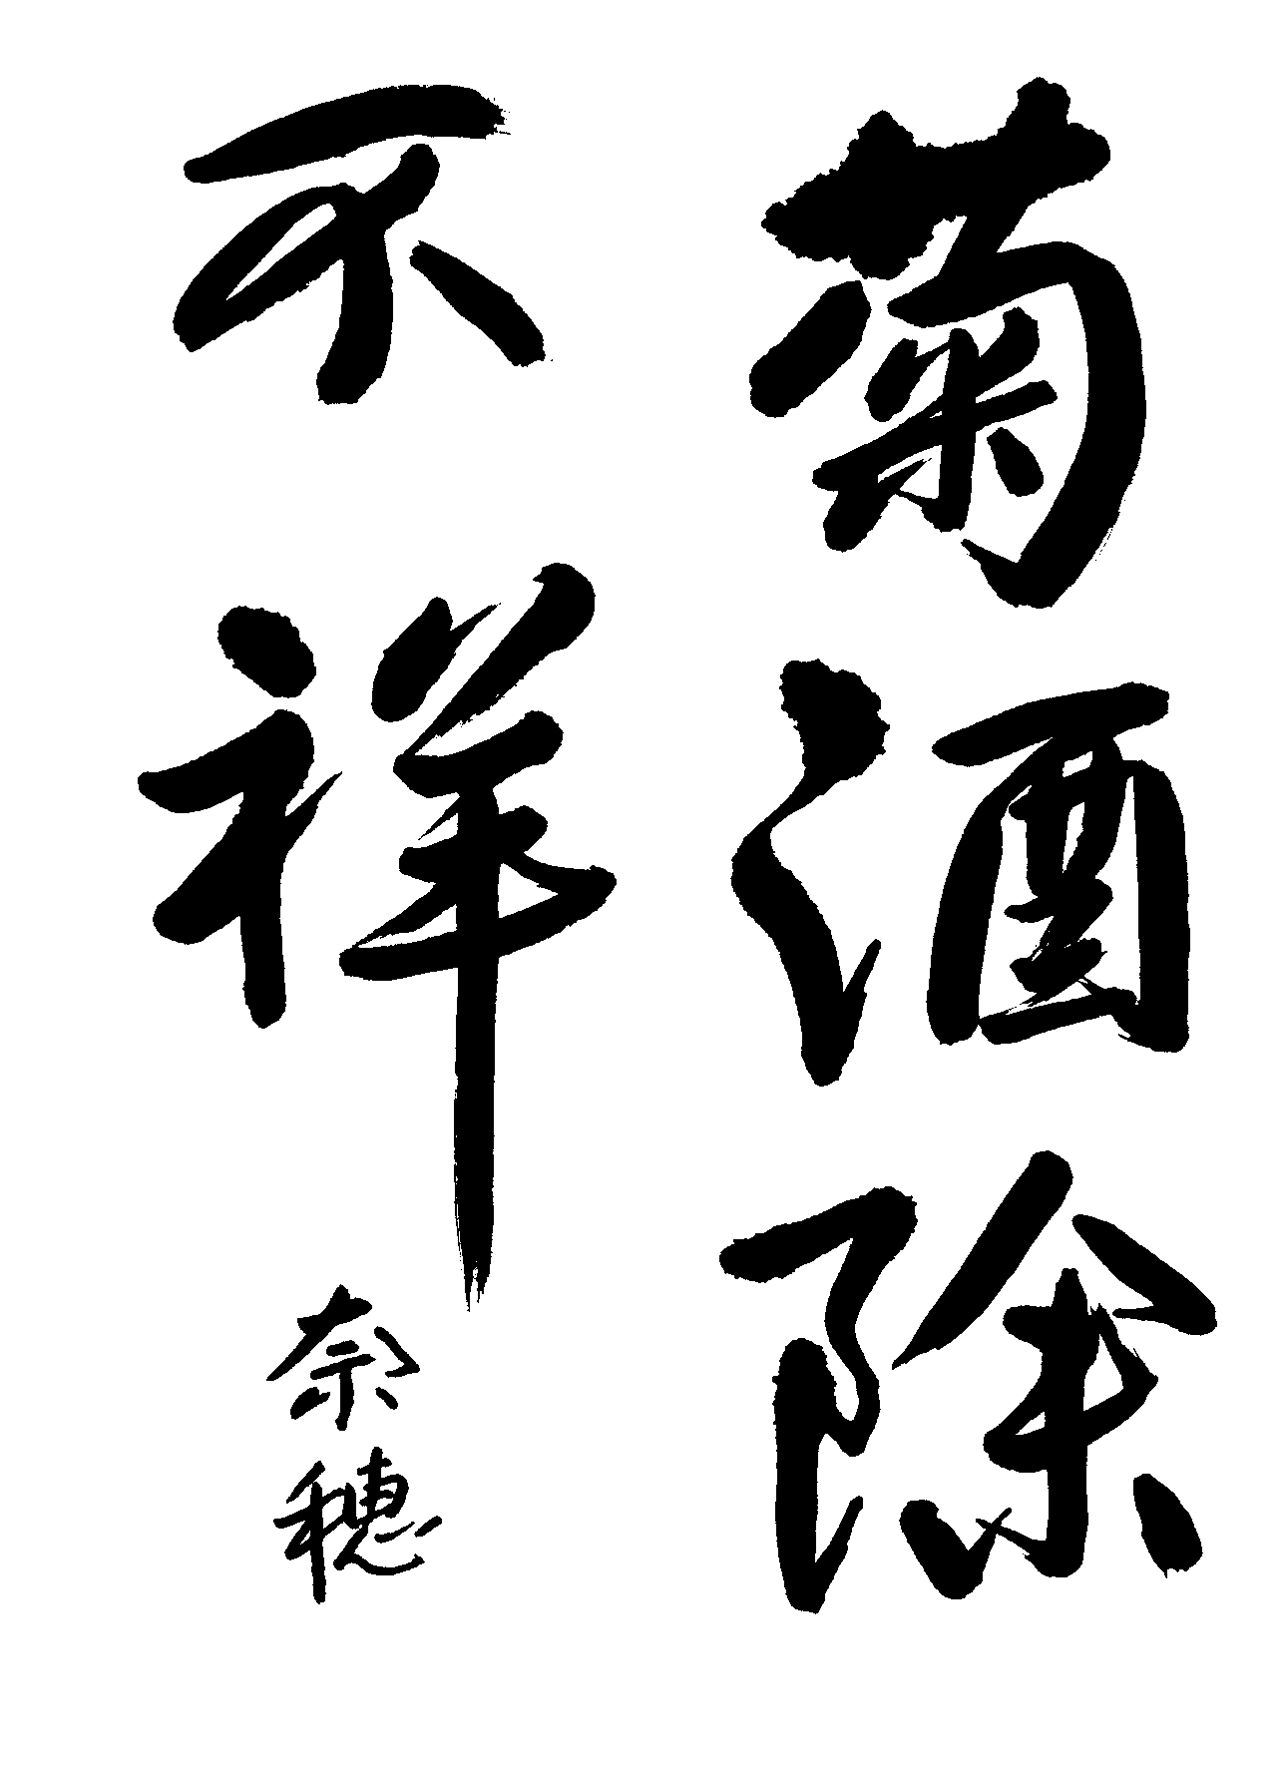 菊酒除
不祥
奈穂